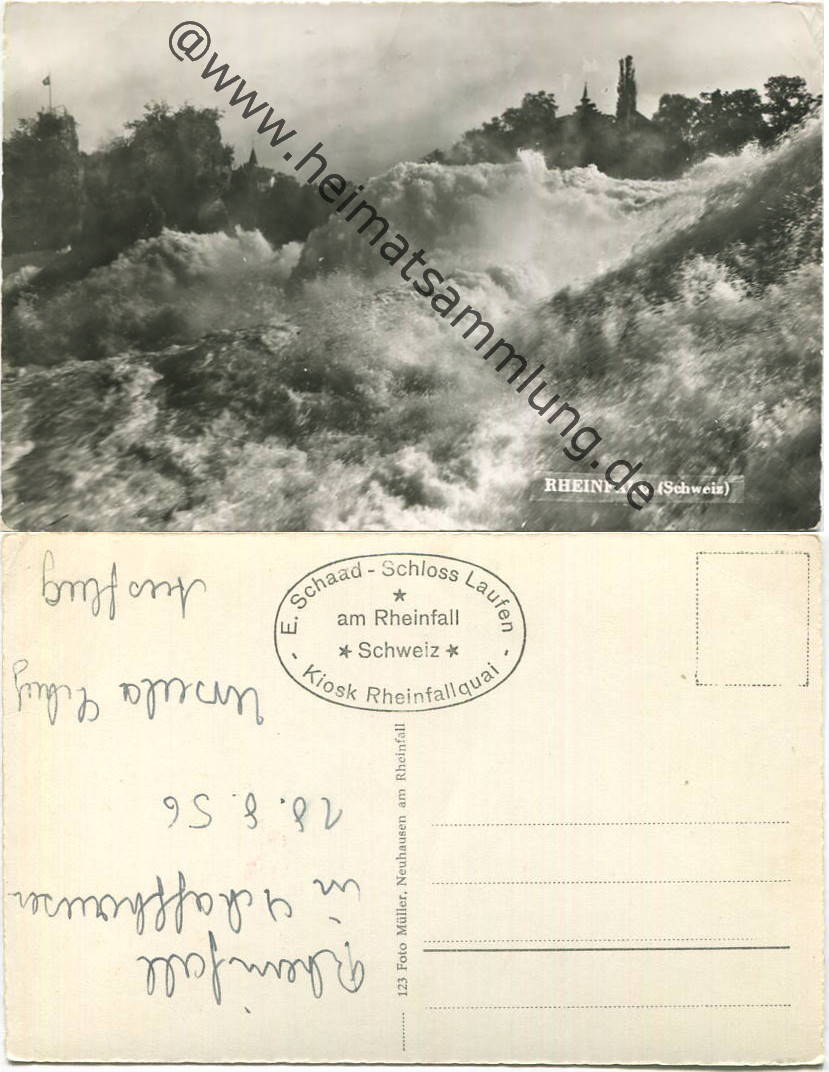 @www.heimatsammlung.de
RHEINFALL (Schweiz)
E. Schaad - Schloss Laufen
am Rheinfall
Schweiz
- Kiosk Rheinfallquai -
123 Foto Müller, Neuhausen am Rheinfall
Rheinfall
in Schaffhausen
28. 8. 56
Ursula
Ausflug